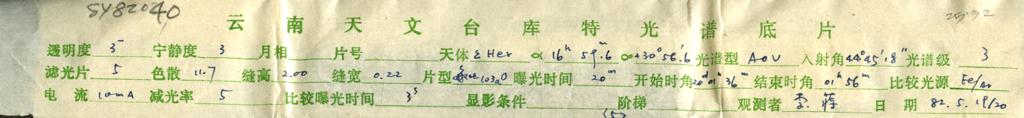 SY82040
云南天文台库特光谱底片
透明度 5 宁静度 3 月相 片号 天体 ε Her α 16h 59m.6 δ +30°56'.6 光谱型 A0V 入射角 44°45'.8 光谱级 3
滤光片 5 色散 11.7 缝高 2.00 缝宽 0.22 片型 103aO 曝光时间 20m 开始时角 36m 结束时角 01h 56m 比较光源 Fe/Ar
电流 10mA 减光率 5 比较曝光时间 3s 显影条件 阶梯 观测者 李、蒋 日期 82.5.19/20